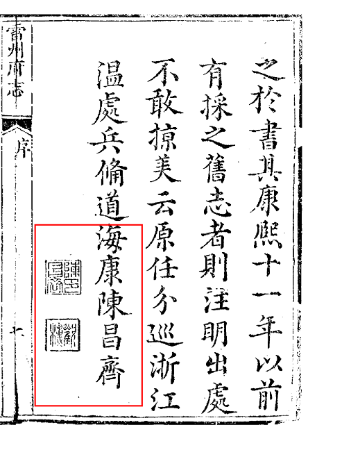 之於書其康熙十一年以前
有採之舊志者則注明出處
不敢掠美云原任分巡浙江
溫處兵備道海康陳昌齊
雷州府志
序